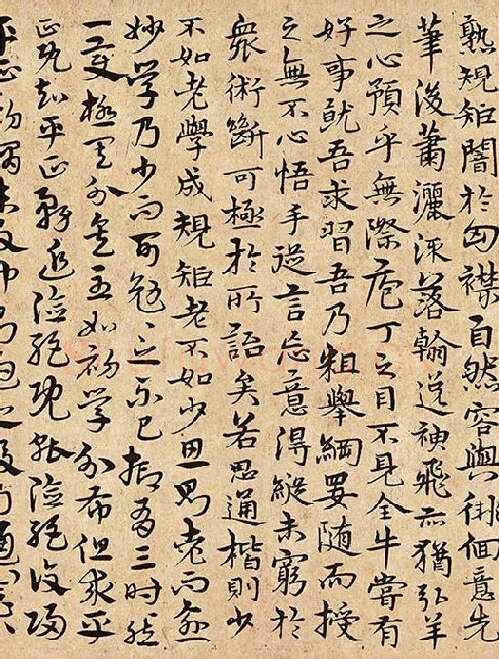 熟規矩闇於匈襟自然容與徘徊意先
筆後蕭灑流落翰逸神飛亦猶弘羊
之心預乎無際庖丁之目不見全牛嘗有
好事就吾求習吾乃粗舉綱要随而授
之無不心悟手從言忘意得縱未窮於
衆術斷可極於所語矣若思通楷則少
不如老學成規矩老不如少思則老而逾
妙学乃少而可勉〻之不已抑有三時然
一變極其分矣至如初学分布但求平
正既知平正務追險絕既能險絕復歸
平正初謂未及中則過之後乃通